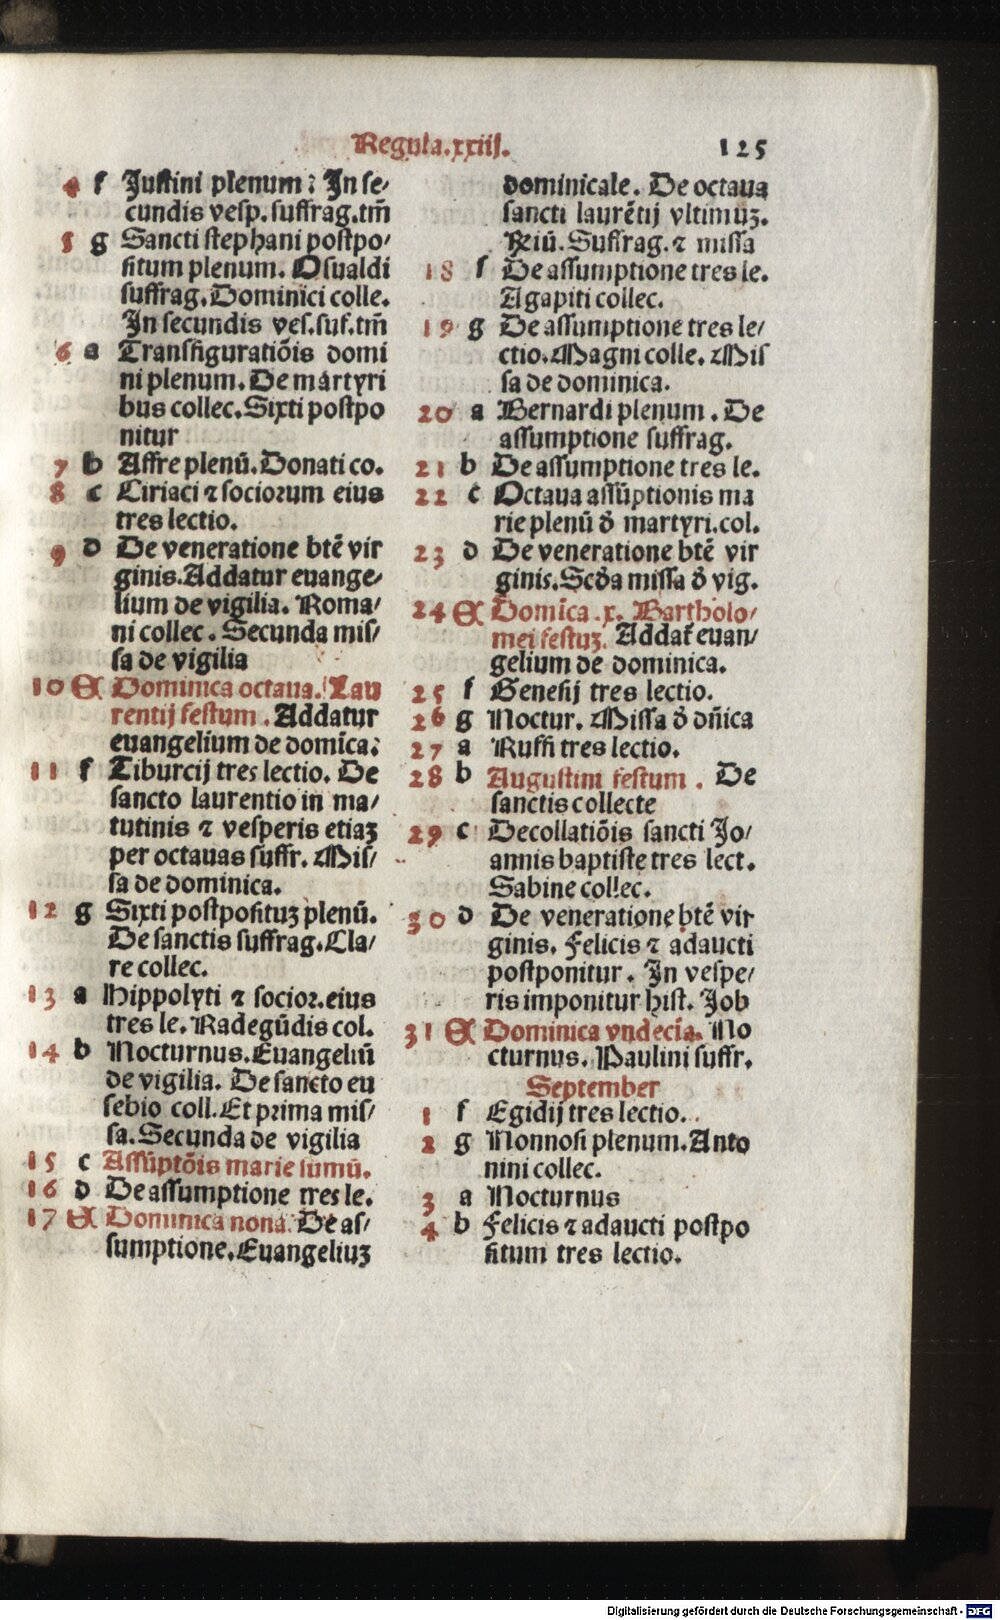 Regula.xxiij.
125
4 f Justini plenum: In se/
cundis vesp. suffrag.tm̄
5 g Sancti stephani postpo/
situm plenum. Osualdi
suffrag. Dominici colle.
In secundis ves.suf.tm̄
6 a Transfiguratiõis domi
ni plenum. De martyri
bus collec. Sixti postpo
nitur
7 b Affre plenū. Donati co.
8 c Ciriaci ⁊ sociorum eius
tres lectio.
9 d De veneratione btē vir
ginis. Addatur euange/
lium de vigilia. Roma/
ni collec. Secunda mis/
sa de vigilia
10 E Dominica octaua. Lau
rentij festum. Addatur
euangelium de domīca:
11 f Tiburcij tres lectio. De
sancto laurentio in ma/
tutinis ⁊ vesperis etiaʒ
per octauas suffr. Mis/
sa de dominica.
12 g Sixti postposituʒ plenū.
De sanctis suffrag. Cla/
re collec.
13 a Hippolyti ⁊ socior.eius
tres le. Radegūdis col.
14 b Nocturnus. Euangeliū
de vigilia. De sancto eu
sebio coll. Et prima mis/
sa. Secunda de vigilia
15 c Assūptōis marie sumū.
16 d De assumptione tres le.
17 E Dominica nona. De as/
sumptione. Euangeliuʒ
dominicale. De octaua
sancti laurētij vltimuʒ.
Riū. Suffrag. ⁊ missa
18 f De assumptione tres le.
Agapiti collec.
19 g De assumptione tres le/
ctio. Magni colle. Mis
sa de dominica.
20 a Bernardi plenum. De
assumptione suffrag.
21 b De assumptione tres le.
22 c Octaua assūptionis ma
rie plenū d̄ martyri.col.
23 d De veneratione btē vir
ginis. Scd̄a missa d̄ vig.
24 E Domīca .x. Bartholo/
mei festuʒ. Addat̄ euan/
gelium de dominica.
25 f Genesij tres lectio.
26 g Noctur. Missa d̄ dn̄ica
27 a Ruffi tres lectio.
28 b Augustini festum. De
sanctis collecte
29 c Decollatiõis sancti Jo/
annis baptiste tres lect.
Sabine collec.
30 d De veneratione btē vir
ginis. Felicis ⁊ adaucti
postponitur. In vespe/
ris imponitur hist. Job
31 E Dominica vndecīa. No
cturnus. Paulini suffr.
September
1 f Egidij tres lectio.
2 g Nonnosi plenum. Anto
nini collec.
3 a Nocturnus
4 b Felicis ⁊ adaucti postpo
situm tres lectio.
Digitalisierung gefördert durch die Deutsche Forschungsgemeinschaft - DFG